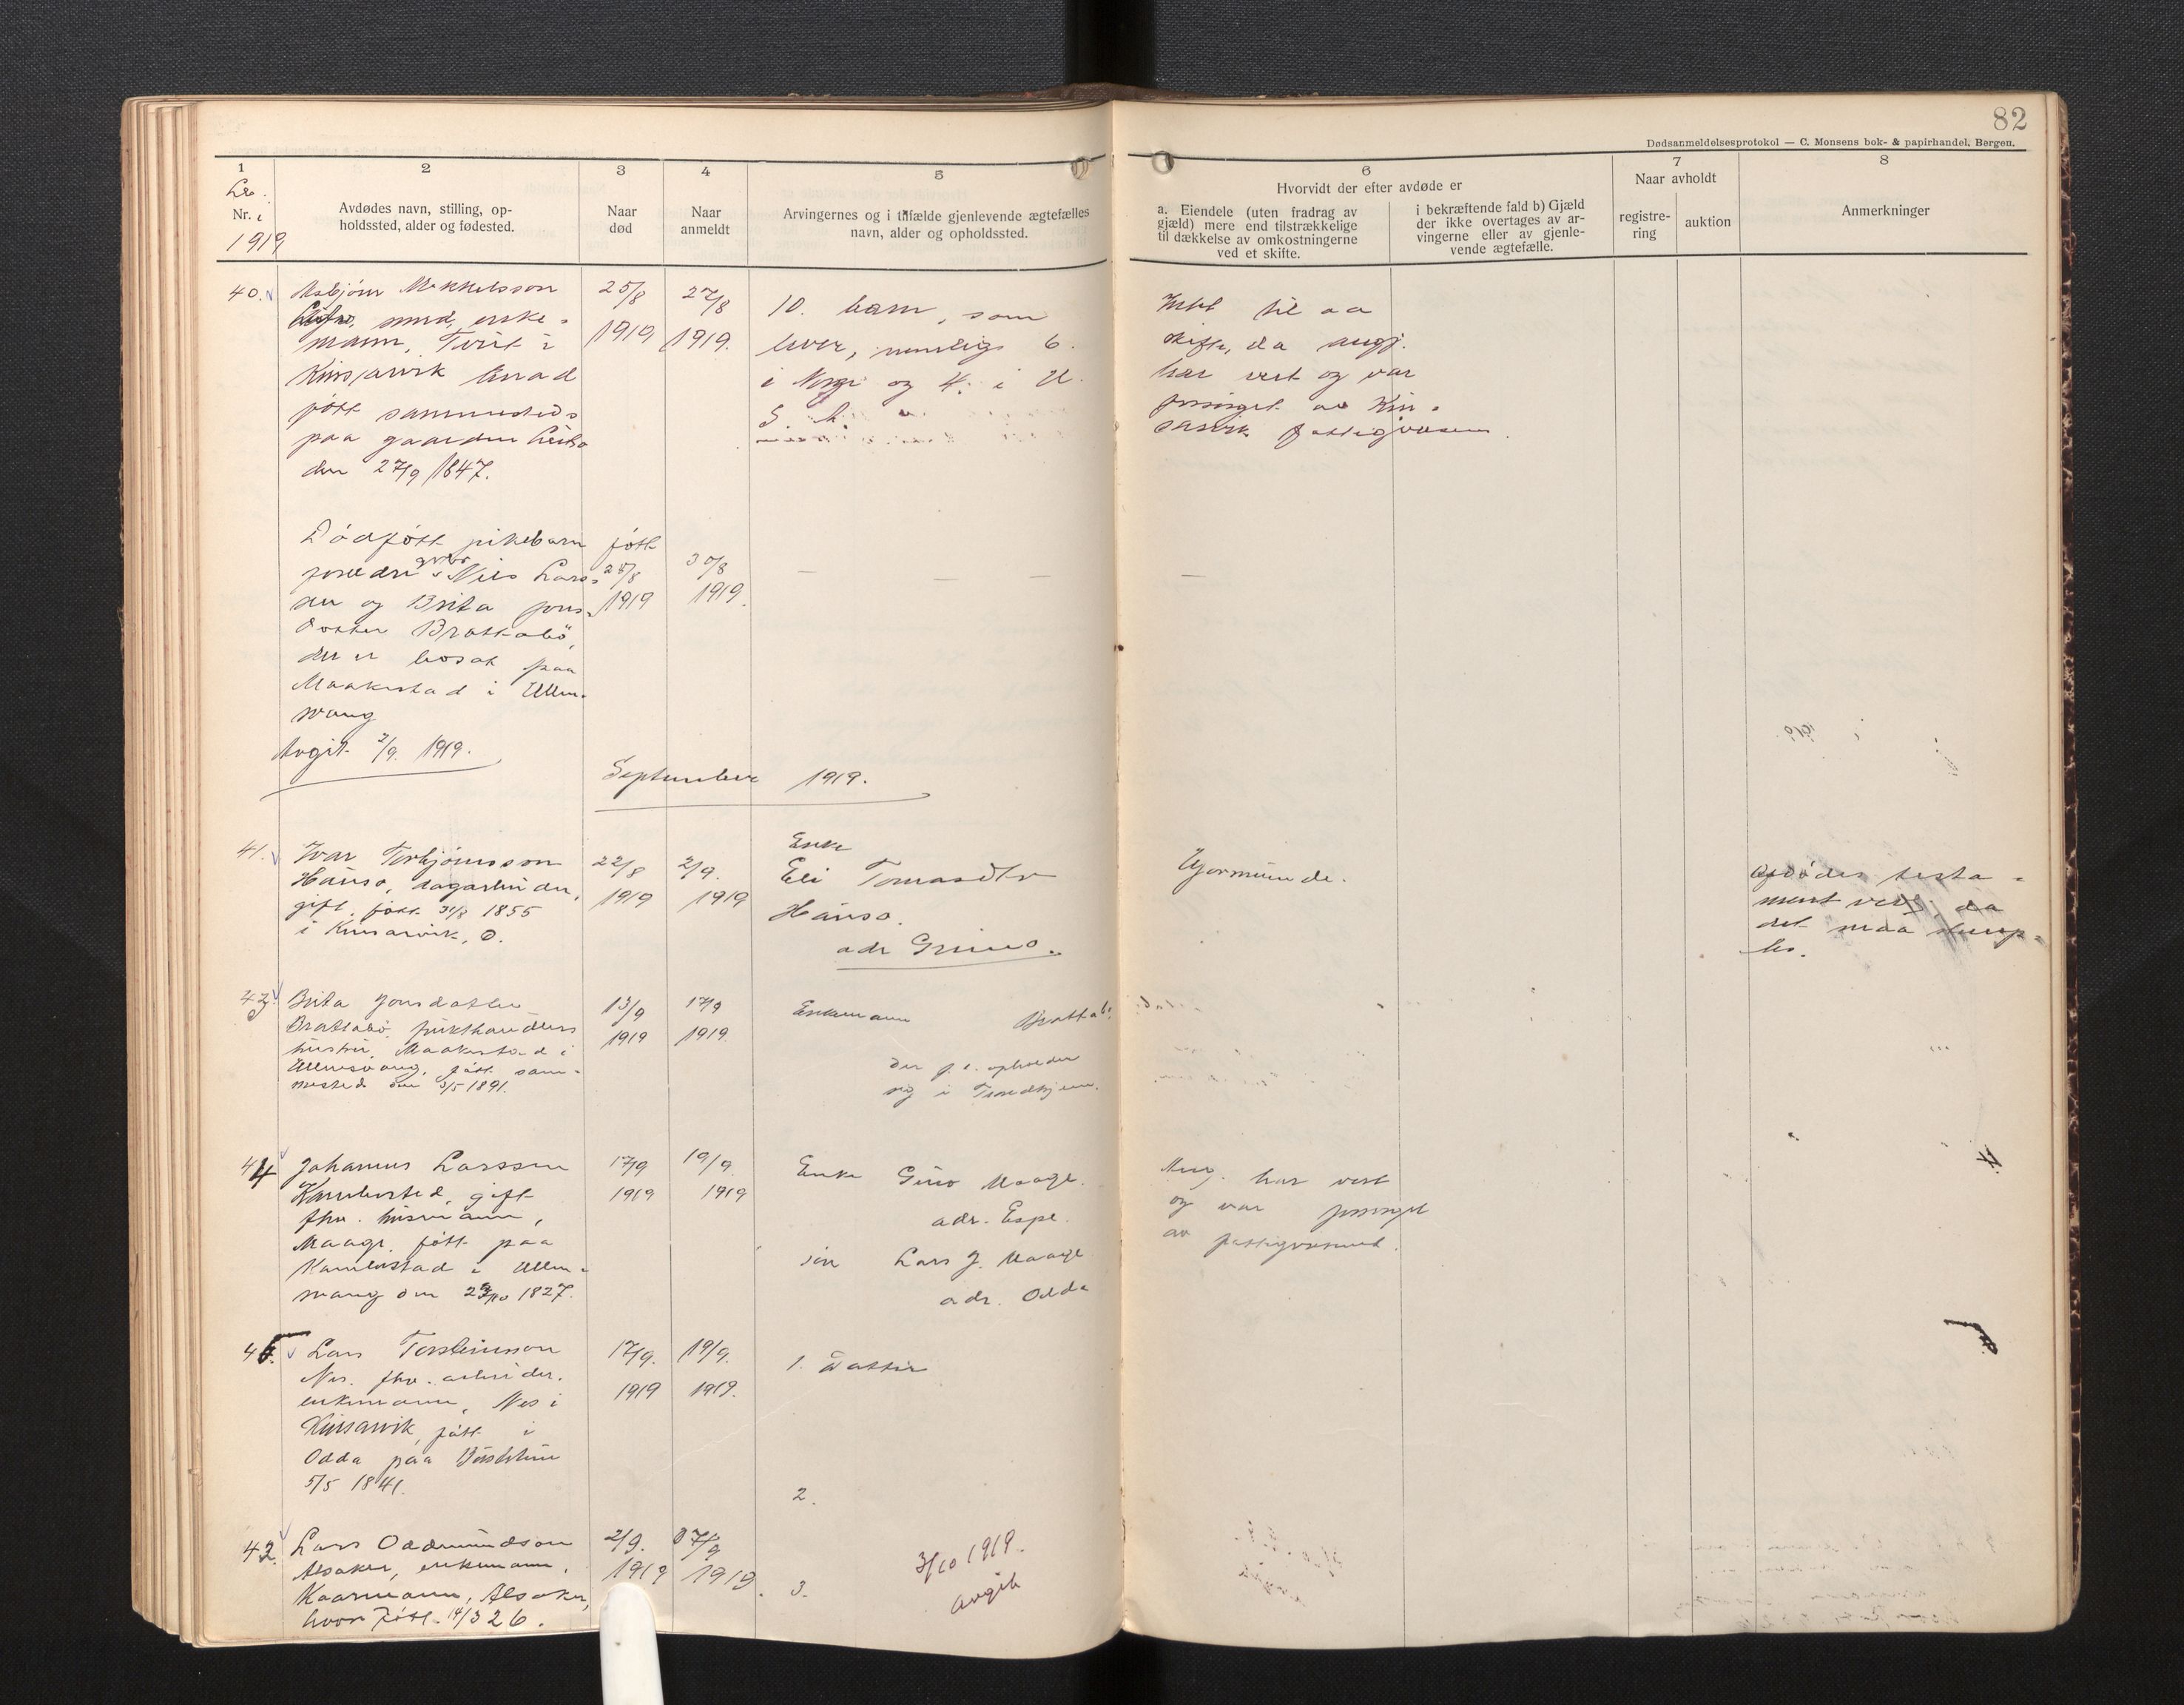 82
Dødsanmeldelsesprotokol — C. Monsens bok- & papirhandel, Bergen.
1
Nr. i
1919
2
Avdødes navn, stilling, op-
holdssted, alder og fødested.
3
Naar
død
4
Naar
anmeldt
5
Arvingernes og i tilfælde gjenlevende ægtefælles
navn, alder og opholdssted.
6
Hvorvidt der efter avdøde er
a. Eiendele (uten fradrag av
gjæld) mere end tilstrækkelige
til dækkelse av omkostningerne
ved et skifte.
i bekræftende fald b) Gjæld
der ikke overtages av ar-
vingerne eller av gjenle-
vende ægtefælle.
7
Naar avholdt
registre-
ring
auktion
8
Anmerkninger
40.
Asbjörn Mikkelsson
smed, enke-
mann, Tveit i
Kinsarvik
fött sammesteds
paa gaarden
den 27/9 1847.
25/8
1919
27/8
1919.
10. barn, som
lever, nemlig 6.
i Norge og 4. i U.
S. A.
Intet til aa
skifte, da
har vært og var
forsörget av Kin-
sarvik fattigvæsen.
Dödfött pikebarn
foreldre Nils Lars-
sen og Brita Jons-
dotter Brattabö,
der er bosat paa
Maakestad i Ullens-
vang
fött
28/8
1919
30/8
1919.
— — — —
Avgit 2/9. 1919.
September 1919.
41.
Ivar Torbjörnsson
Hauso, dagarbeider,
gift, fött 31/8 1855
i Kinsarvik, O.
22/8
1919
2/9.
1919
Enke
Eli Tomasdtr
Hauso.
adr Grimo.
Uformuende.
Avdödes testa-
ment ved, da
det maa stemp-
les.
43.
Brita Jonsdatter
Brattabö frukthandlers
hustru, Maakestad i
Ullensvang, fött sam-
mested den 3/5 1891.
13/9
1919
17/9
1919.
Enkemann Brattabö
der f. t. opholder
sig i Trondhjem.
44
Johannes Larssen
Kambestad, gift
fhv. husmann,
Maage, fött paa
Kambestad i Ullens-
vang den 1827.
17/9
1919
19/9.
1919
Enke Guro Maage.
adr. Espe.
sön Lars J. Maage
adr. Odda
har vært
og var forsörget
av fattigvæsenet.
45.
Lars Torsteinsson
Nes. fhv. arbeider.
enkemann, Nes i
Kinsarvik, fött i
Odda paa
5/5 1841.
17/9.
1919
19/9.
1919.
1. datter
2.
3.
42.
Lars Oddmundson
Alsaker, enkemann,
Kaarmann, Alsaker,
hvor fött 14/3 26.
2/9.
1919
7/9
1919.
3/10 1919.
avgit